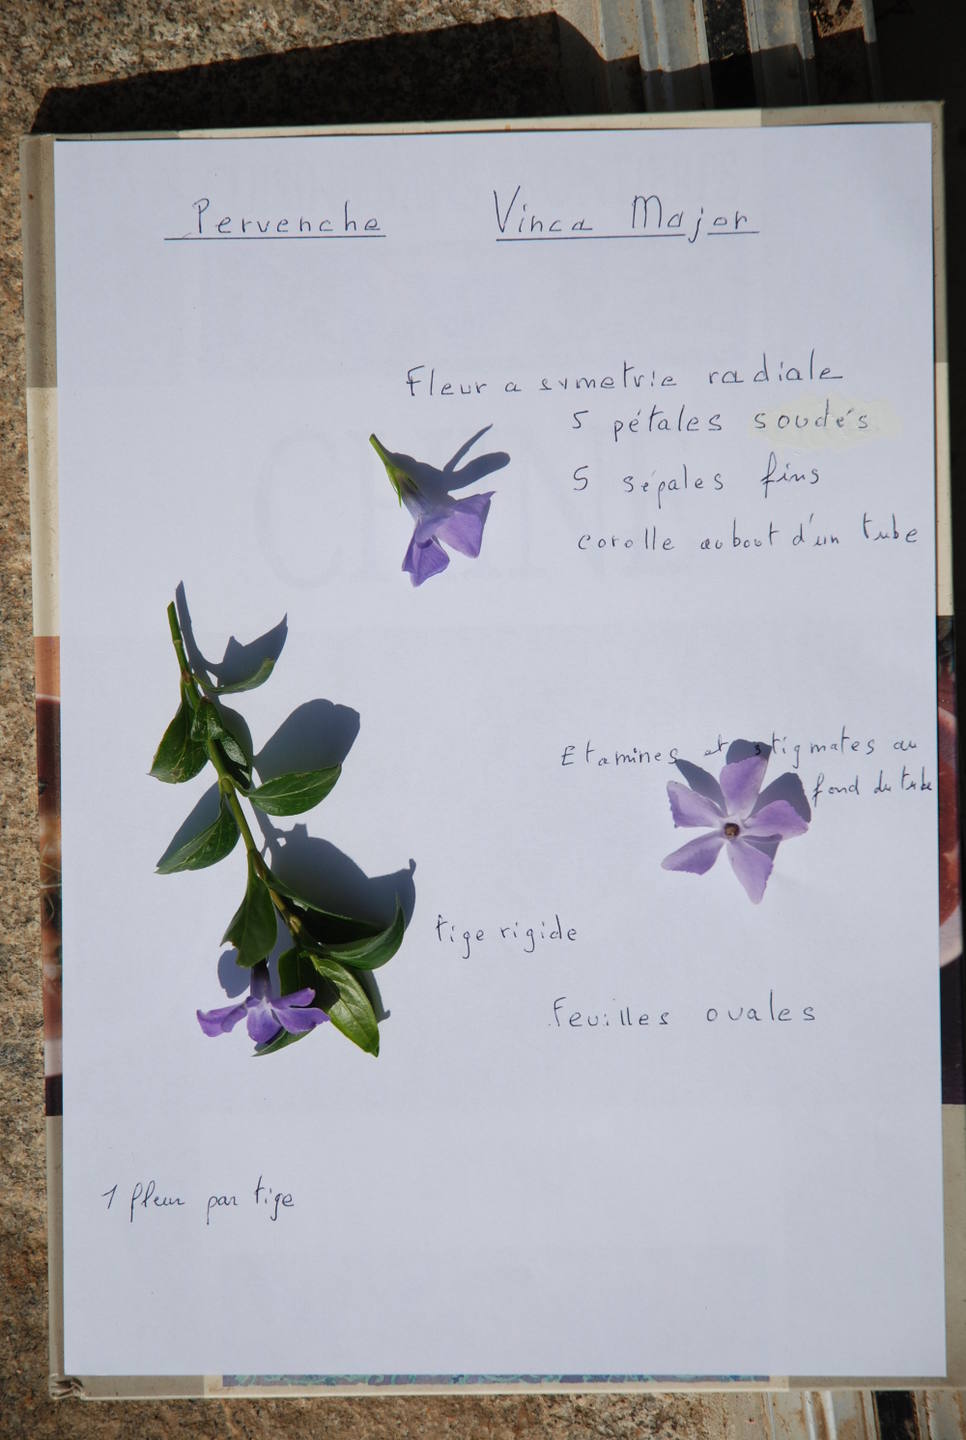 Pervenche Vinca Major
Fleur a symetrie radiale
5 pétales soudés
5 sépales fins
corolle au bout d'un tube
Etamines et stigmates au
fond du tube
tige rigide
Feuilles ovales
1 fleur par tige